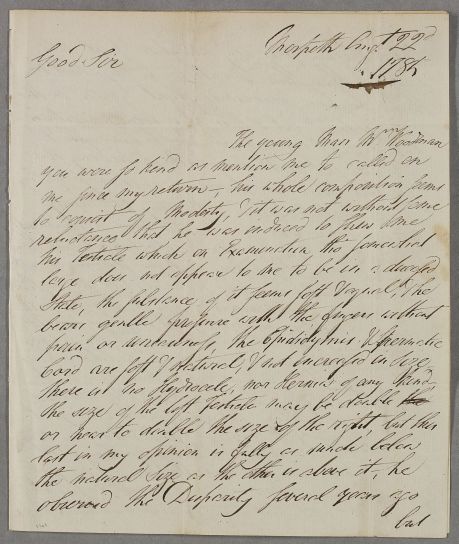 Morpeth Augt 22d
1785
Good Sir
The young Man Wm Woodman
you were so kind as mention me to called on
me since my return, his whole composition seems
to consist of Modesty, it was not without some
reluctance that he was induced to shew me
his Testicle which on Examination tho somewhat
large does not appear to me to be in a diseased
State, the Substance of it seems soft & equal, & he
bears gentle pressure with the fingers without
pain or uneasiness, the Epididymis & Spermatic
Cord are soft & Natural, & not increased in size
there is no Hydrocele, nor Hernia of any kind,
the size of the left Testicle may be double
or near to double the size of the right, but this
last in my opinion is fully as much below
the natural size as the other is above it, he
observed the Disparity several years ago
but